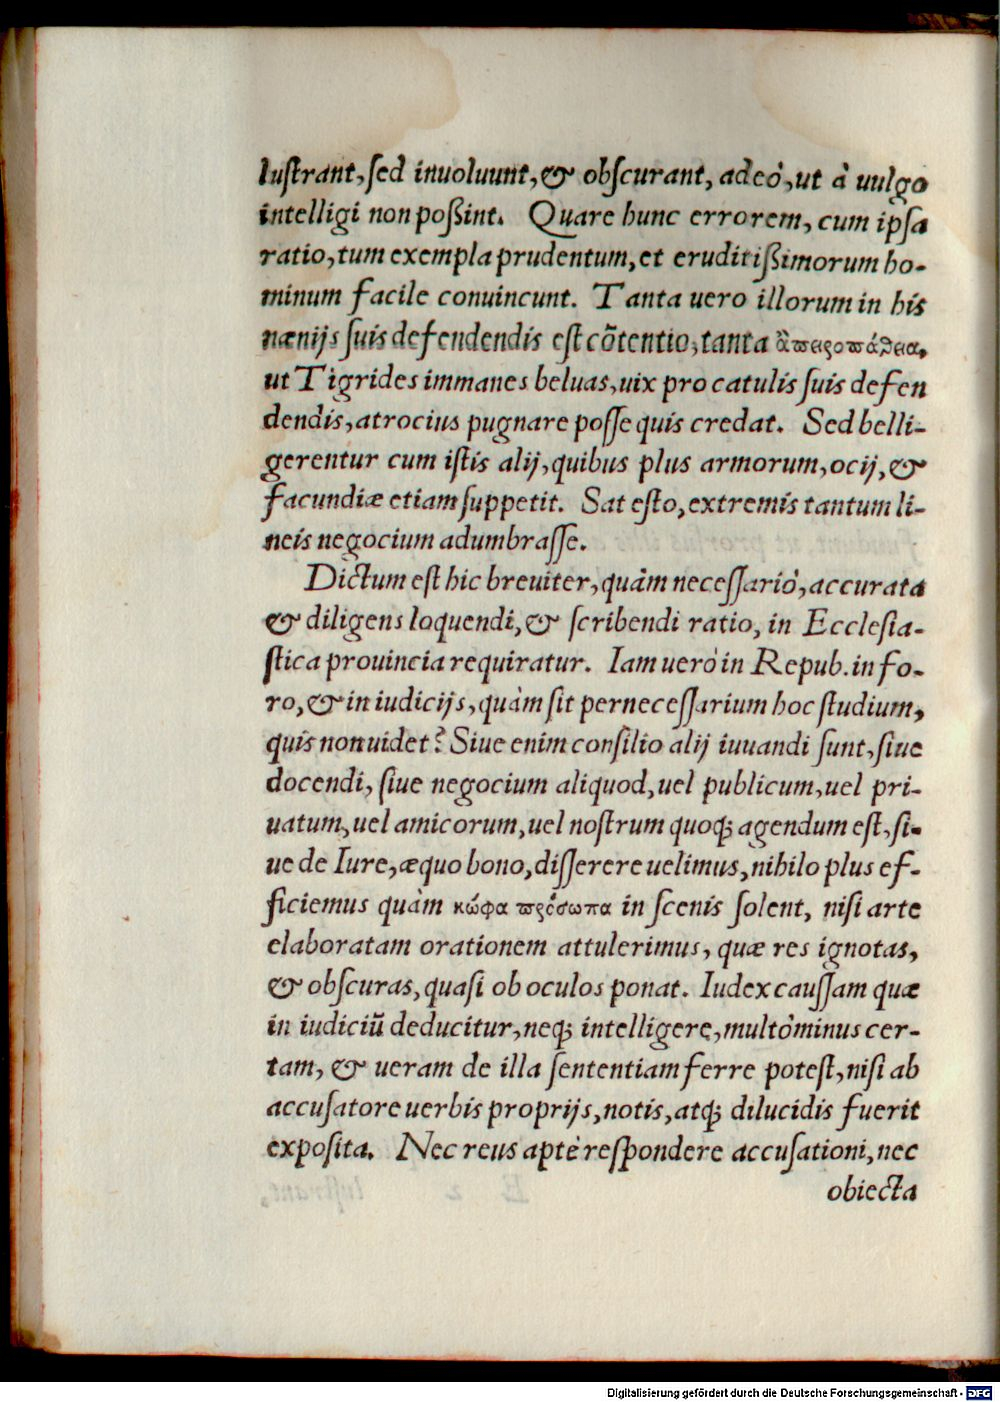 luſtrant, ſed inuoluunt, & obſcurant, adeò, ut à uulgo
intelligi non poßint. Quare hunc errorem, cum ipſa
ratio, tum exempla prudentum, et eruditißimorum ho-
minum facile conuincunt. Tanta uero illorum in his
nænijs ſuis defendendis eſt cõtentio, tanta
ut Tigrides immanes beluas, uix pro catulis ſuis defen
dendis, atrocius pugnare poſſe quis credat. Sed belli-
gerentur cum iſtis alij, quibus plus armorum, ocij, &
facundiæ etiam ſuppetit. Sat eſto, extremis tantum li-
neis negocium adumbraſſe.
Dictum eſt hic breuiter, quàm neceſſariò, accurata
& diligens loquendi, & ſcribendi ratio, in Eccleſia-
ſtica prouincia requiratur. Iam uerò in Repub. in fo-
ro, & in iudicijs, quàm ſit perneceſſarium hoc ſtudium,
quis non uidet? Siue enim conſilio alij iuuandi ſunt, ſiue
docendi, ſiue negocium aliquod, uel publicum, uel pri-
uatum, uel amicorum, uel noſtrum quoq; agendum eſt, ſi-
ue de Iure, æquo bono, diſſerere uelimus, nihilo plus ef-
ficiemus quàm κώφα πρόσωπα in ſcenis ſolent, niſi arte
elaboratam orationem attulerimus, quæ res ignotas,
& obſcuras, quaſi ob oculos ponat. Iudex cauſſam quæ
in iudiciũ deducitur, neq; intelligere, multò minus cer-
tam, & ueram de illa ſententiam ferre poteſt, niſi ab
accuſatore uerbis proprijs, notis, atq; dilucidis fuerit
expoſita. Nec reus aptè reſpondere accuſationi, nec
obiecta
Digitalisierung gefördert durch die Deutsche Forschungsgemeinschaft - DFG